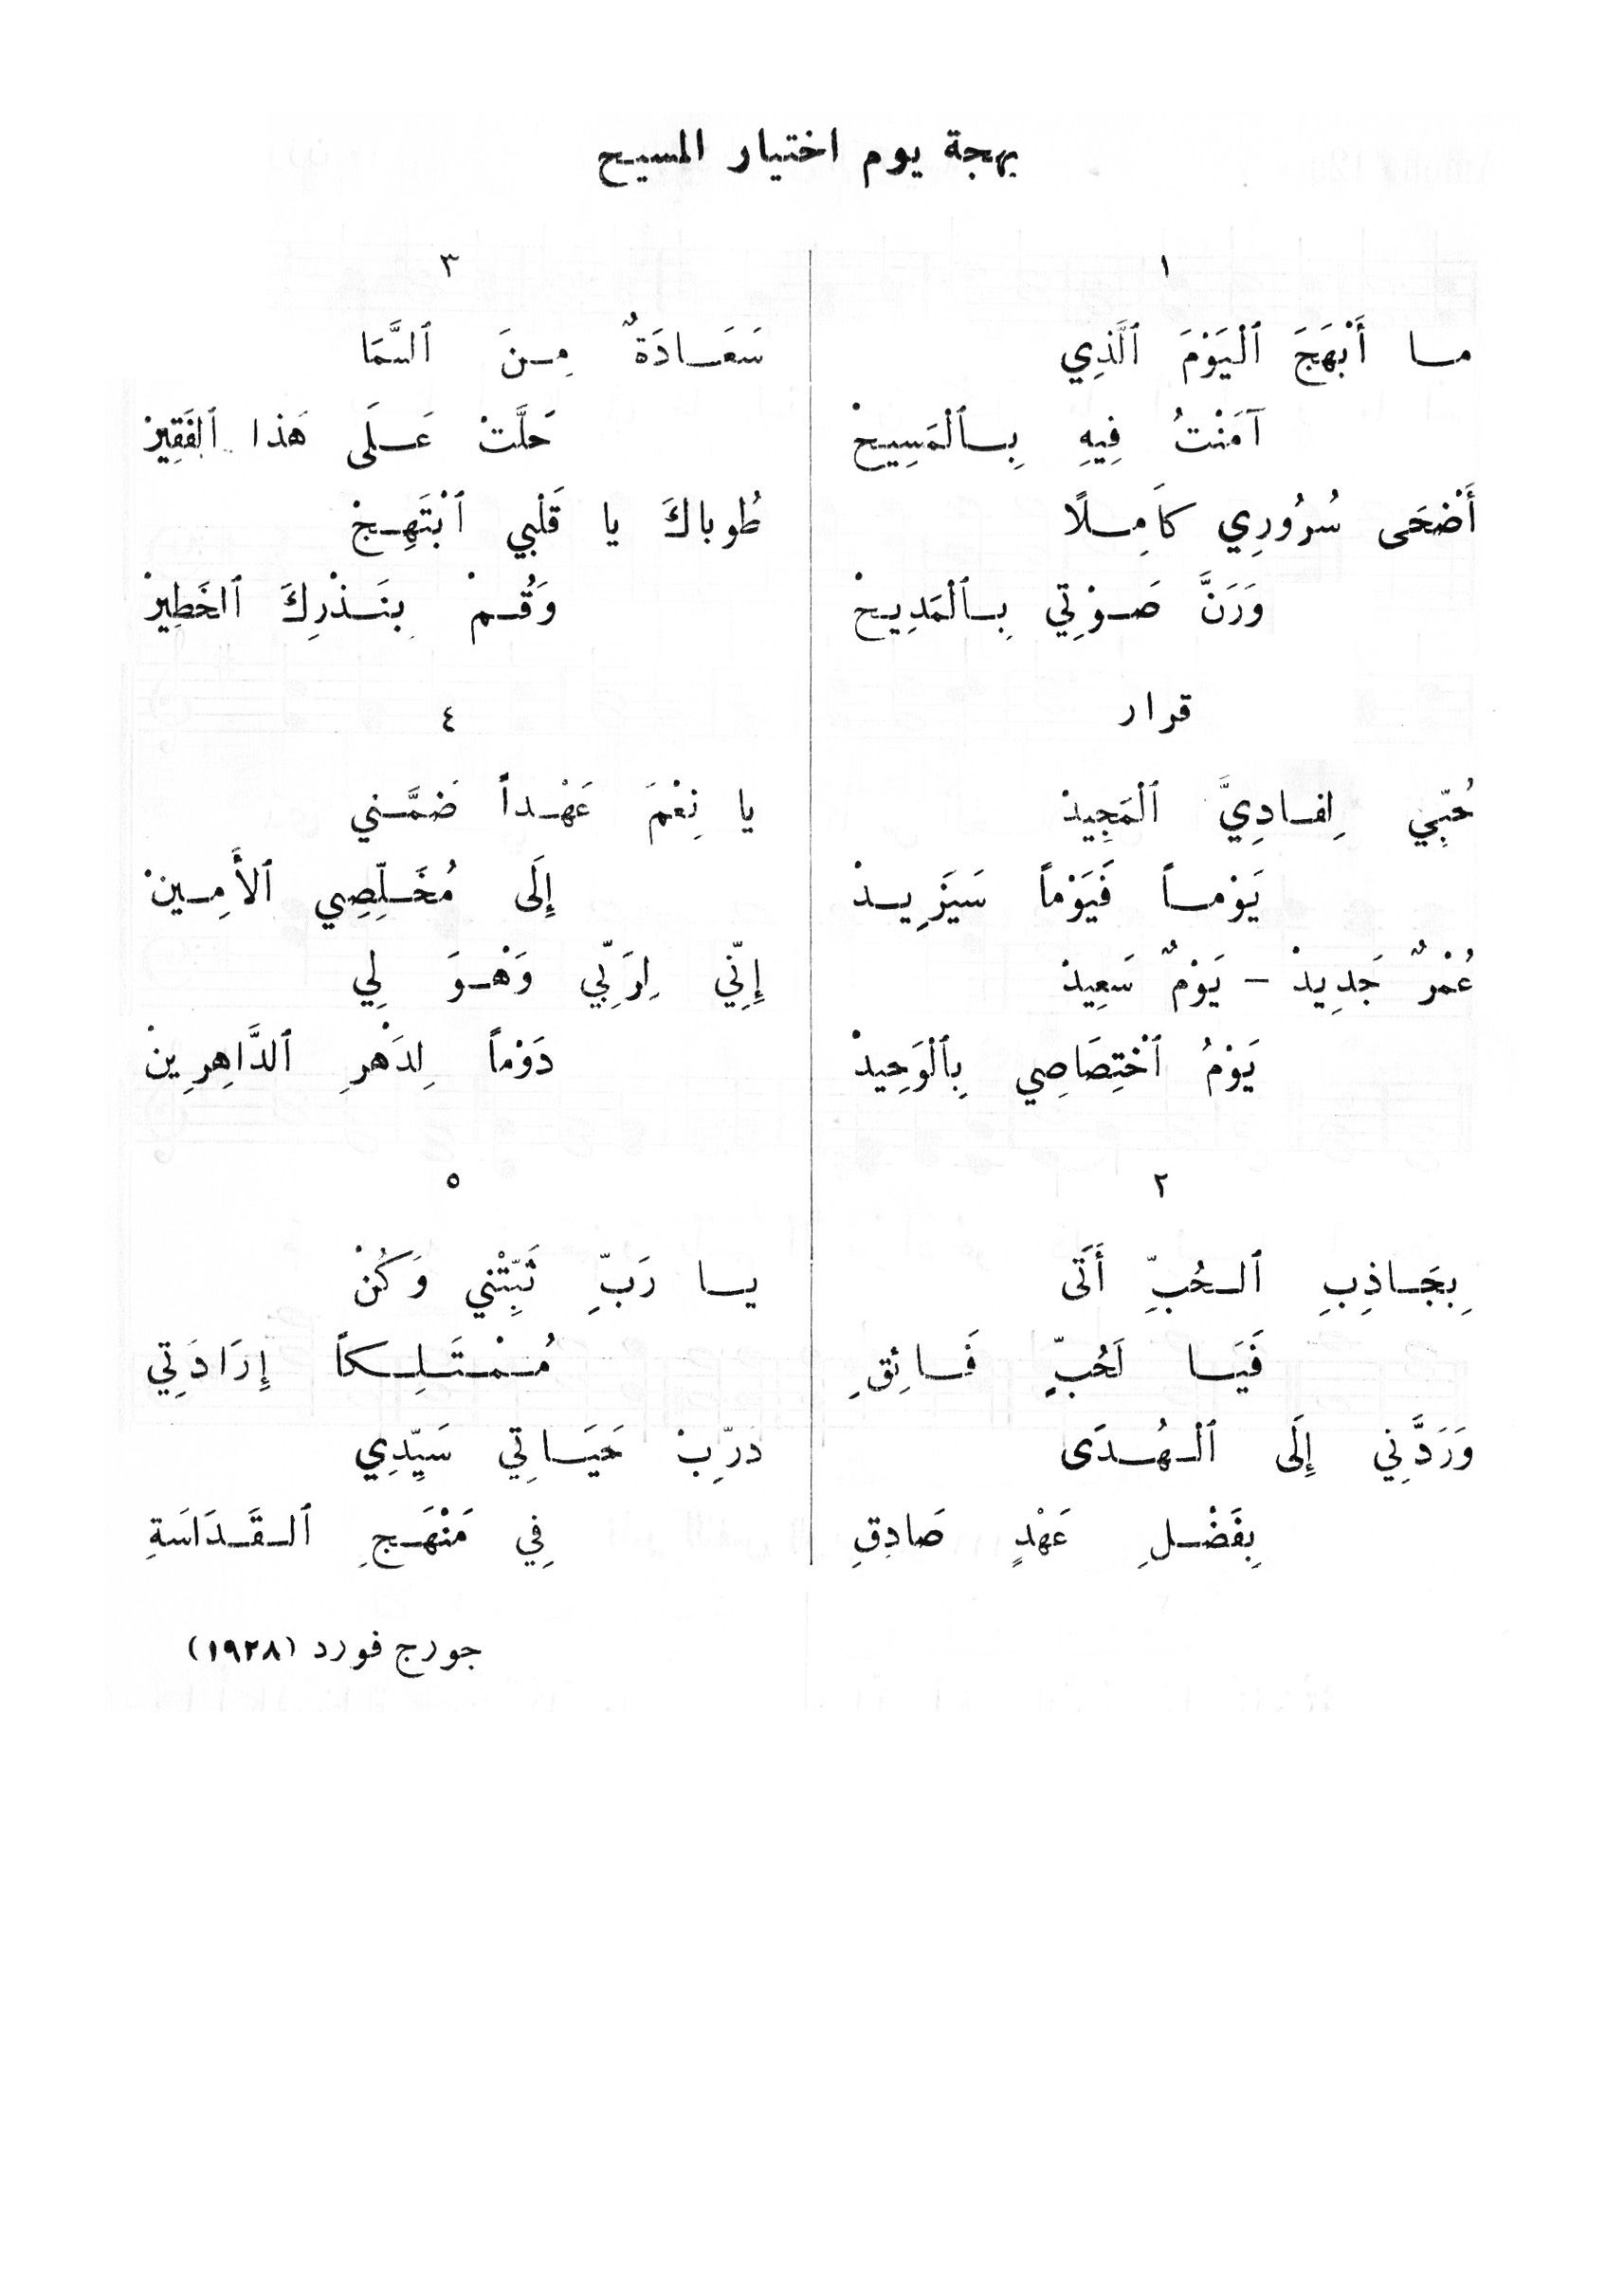 بهجة يوم اختيار المسيح
١
ما أَبْهَجَ ٱلْيَوْمَ ٱلَّذِي
آمَنْتُ فِيهِ بِٱلْمَسِيحْ
أَضْحَى سُرُورِي كَامِلًا
وَرَنَّ صَوْتِي بِٱلْمَدِيحْ
قرار
حُبِّي لِفَادِيَّ ٱلْمَجِيدْ
يَوْماً فَيَوْماً سَيَزِيدْ
عُمْرٌ جَدِيدْ – يَوْمٌ سَعِيدْ
يَوْمُ ٱخْتِصَاصِي بِٱلْوَحِيدْ
٢
بِجَاذِبِ ٱلحُبِّ أَتَى
فَيَا لَحُبٍّ فَائِقِ
وَرَدَّنِي إِلَى ٱلْهُدَى
بِفَضْلِ عَهْدٍ صَادِقِ
٣
سَعَادَةٌ مِنَ ٱلسَّمَا
حَلَّتْ عَلَى هَذا ٱلفَقِيرْ
طُوباكَ يا قَلْبي ٱبْتَهِجْ
وَقُمْ بِنَذْرِكَ ٱلخَطِيرْ
٤
يا نِعْمَ عَهْداً ضَمَّني
إِلَى مُخَلِّصِي ٱلأَمِينْ
إِنِّي لِرَبِّي وَهْوَ لِي
دَوْماً لِدَهْرِ ٱلدَّاهِرِينْ
٥
يا رَبِّ ثَبِّتْني وَكُنْ
مُمْتَلِكاً إِرَادَتِي
دَرِّبْ حَيَاتِي سَيِّدِي
فِي مَنْهَجِ ٱلقَدَاسَةِ
جورج فورد (١٩٢٨)